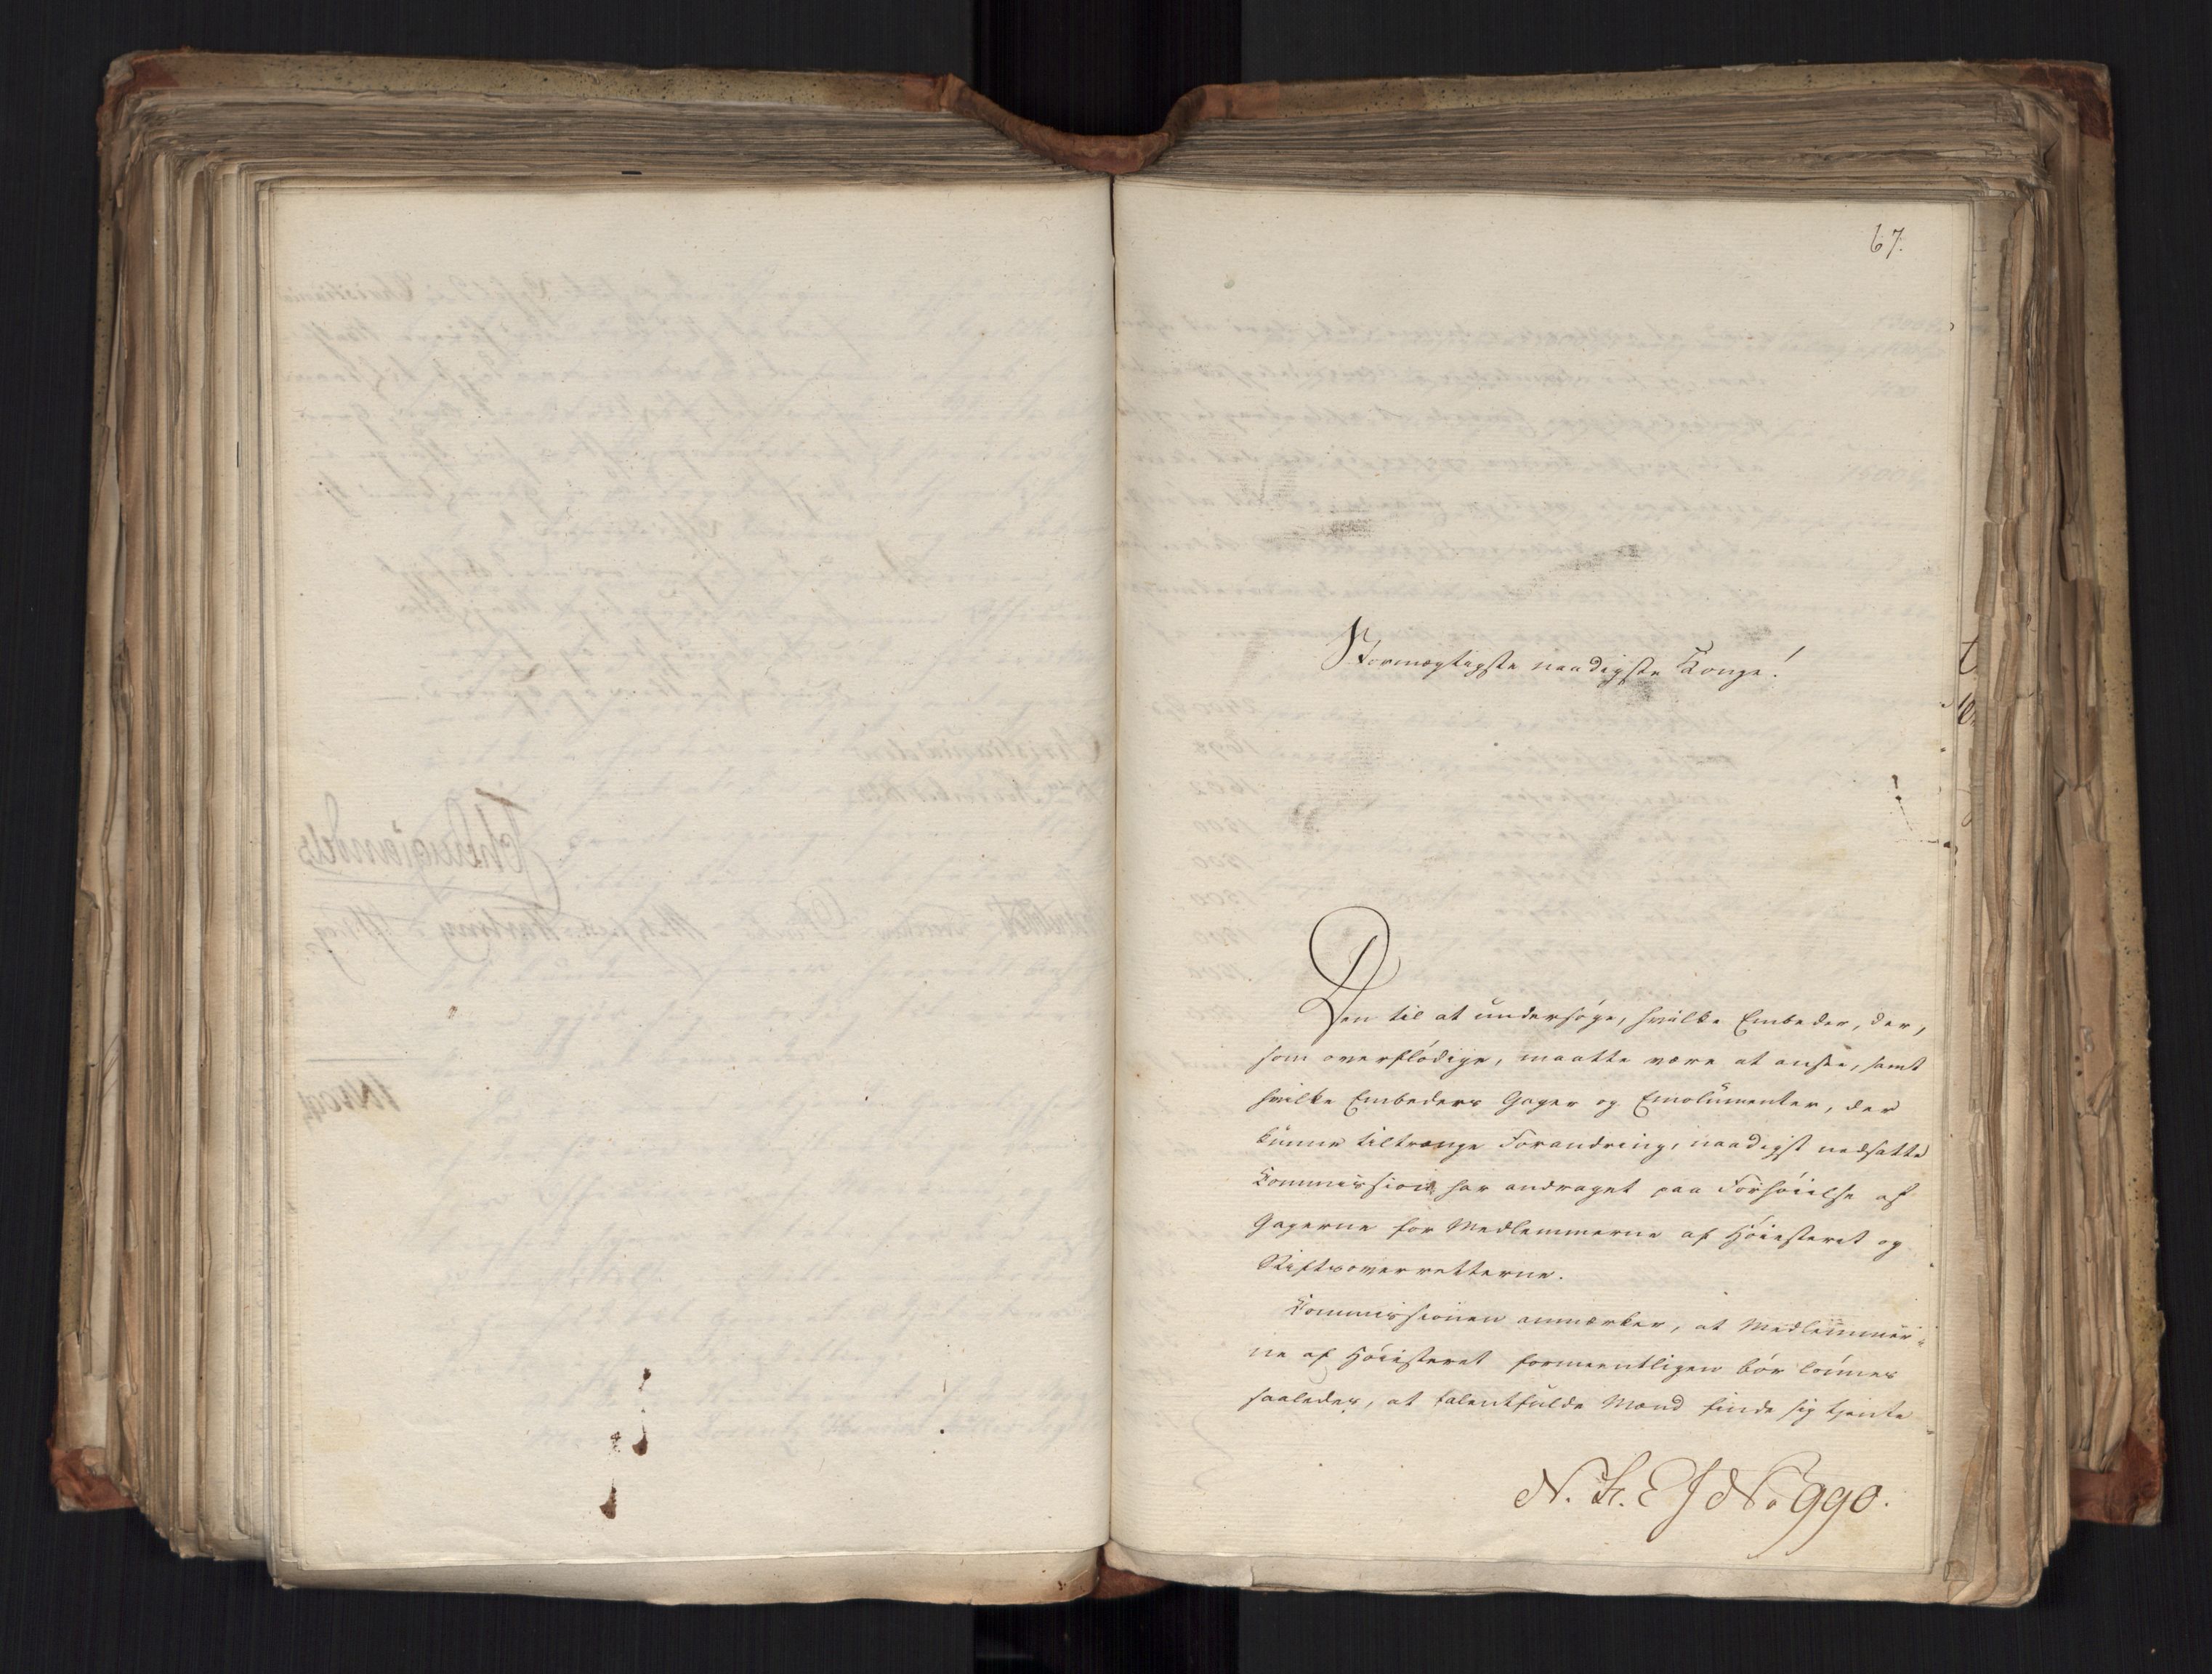 67.
Stormægtigste naadigste Konge!
Den til at undersøge, hvilke Embeder, der,
som overflödige, maatte være at ansee, samt
hvilke Embeders Gager og Emolumenter, der
kunne tiltrænge Forandring, naadigst nedsatte
Commission har andraget paa Forhöielse af
Gagerne for Medlemmerne af Höiesteret og
Stiftsoverretterne.
Commissionen anmærker, at Medlemmer-
ne af Höiesteret formeentligen bör lönnes
saaledes, at talentfulde Mænd finde sig tjente
N. No 990.